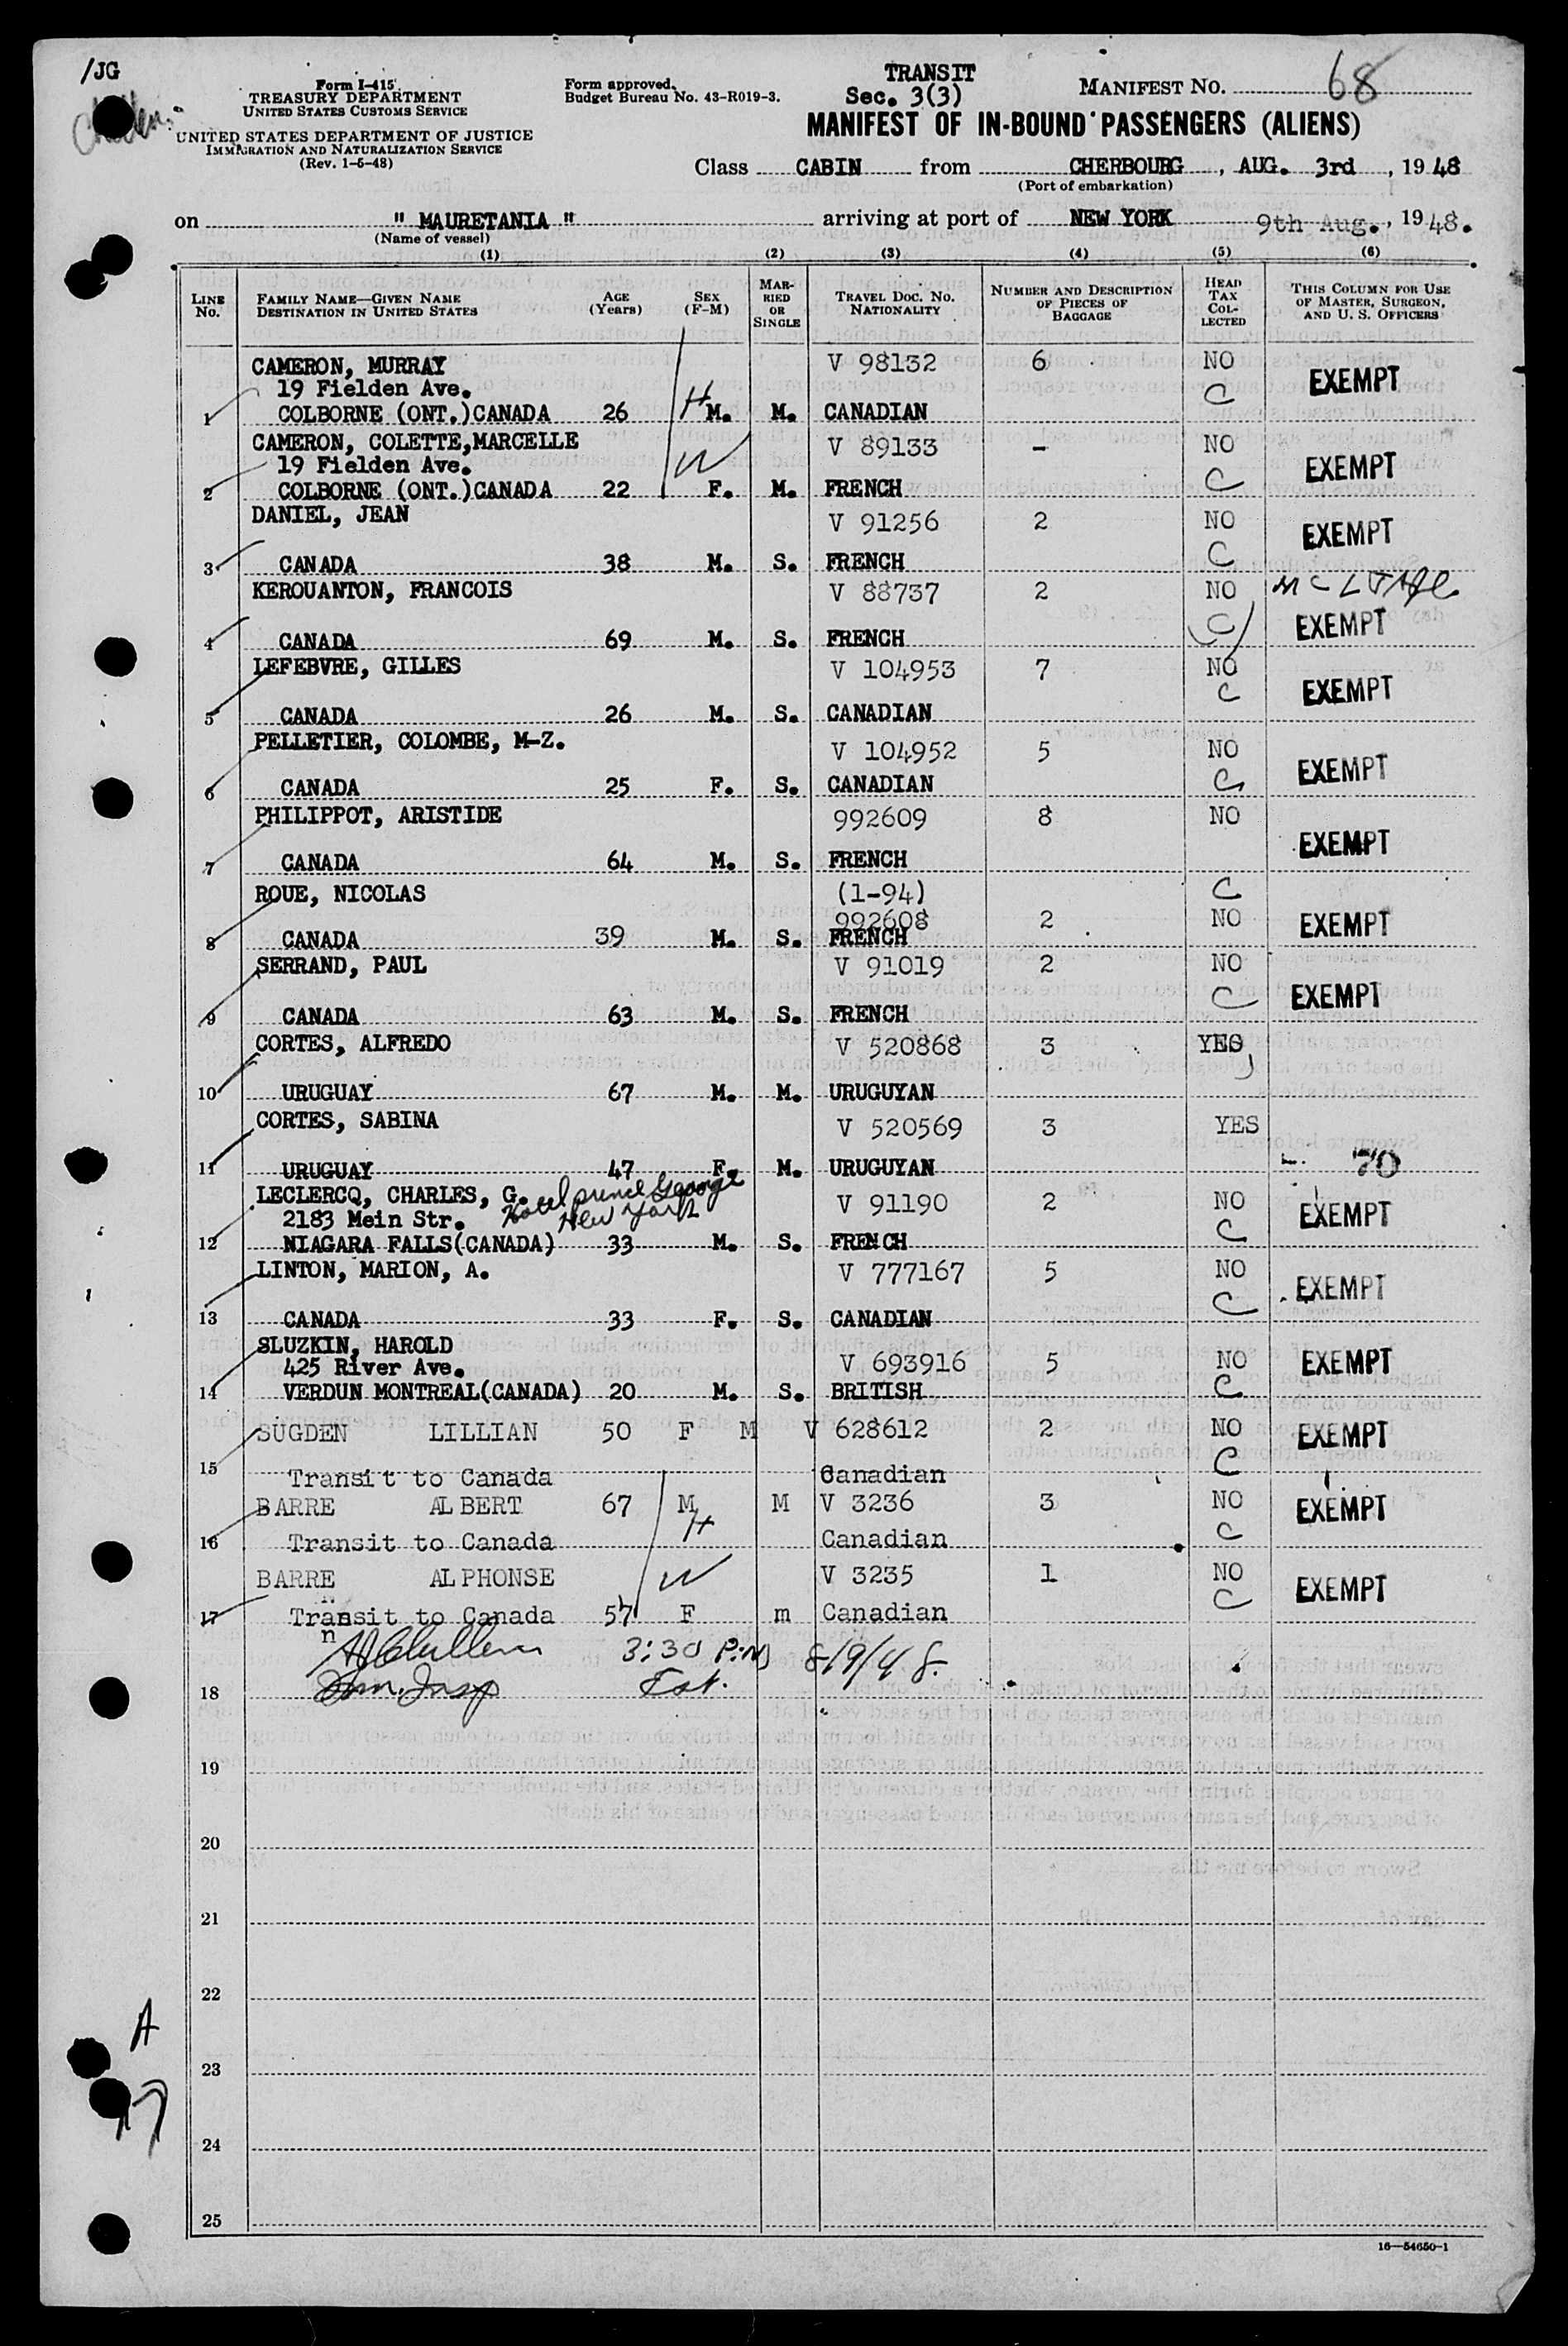 /JG
Form I-415
TREASURY DEPARTMENT
UNITED STATES CUSTOMS SERVICE
UNITED STATES DEPARTMENT OF JUSTICE
IMMIGRATION AND NATURALIZATION SERVICE
(Rev. 1-5-48)
Form approved.
Budget Bureau No. 43-R019-3.
TRANSIT
Sec. 3(3)
MANIFEST NO. 68
MANIFEST OF IN-BOUND PASSENGERS (ALIENS)
Class CABIN from CHERBOURG, AUG. 3rd, 1948
(Port of embarkation)
on " MAURETANIA " arriving at port of NEW YORK 9th Aug., 1948.
(Name of vessel)
(1) (2) (3) (4) (5) (6)
LINE No. FAMILY NAME—GIVEN NAME DESTINATION IN UNITED STATES AGE (Years) SEX (F-M) MARRIED OR SINGLE TRAVEL DOC. NO. NATIONALITY NUMBER AND DESCRIPTION OF PIECES OF BAGGAGE HEAD TAX COLLECTED THIS COLUMN FOR USE OF MASTER, SURGEON, AND U. S. OFFICERS
CAMERON, MURRAY V 98132 6 NO
19 Fielden Ave. C EXEMPT
1 COLBORNE (ONT.) CANADA 26 H M. M. CANADIAN
CAMERON, COLETTE, MARCELLE V 89133 - NO
19 Fielden Ave. W C EXEMPT
2 COLBORNE (ONT.) CANADA 22 F. M. FRENCH
DANIEL, JEAN V 91256 2 NO EXEMPT
3 CANADA 38 M. S. FRENCH C
KEROUANTON, FRANCOIS V 88737 2 NO
4 CANADA 69 M. S. FRENCH C EXEMPT
LEFEBVRE, GILLES V 104953 7 NO
5 CANADA 26 M. S. CANADIAN C EXEMPT
PELLETIER, COLOMBE, M-Z. V 104952 5 NO
6 CANADA 25 F. S. CANADIAN C EXEMPT
PHILIPPOT, ARISTIDE 992609 8 NO
7 CANADA 64 M. S. FRENCH EXEMPT
ROUE, NICOLAS (1-94) C
992608 2 NO EXEMPT
8 CANADA 39 M. S. FRENCH
SERRAND, PAUL V 91019 2 NO
9 CANADA 63 M. S. FRENCH C EXEMPT
CORTES, ALFREDO V 520868 3 YES
10 URUGUAY 67 M. M. URUGUYAN
CORTES, SABINA V 520569 3 YES
11 URUGUAY 47 F. M. URUGUYAN 70
LECLERCQ, CHARLES, G. Hotel prince George V 91190 2 NO
2183 Mein Str. New York C EXEMPT
12 NIAGARA FALLS (CANADA) 33 M. S. FRENCH
LINTON, MARION, A. V 777167 5 NO
13 CANADA 33 F. S. CANADIAN C EXEMPT
SLUZKIN, HAROLD
425 River Ave. V 693916 5 NO EXEMPT
14 VERDUN MONTREAL (CANADA) 20 M. S. BRITISH C
SUGDEN LILLIAN 50 F M V 628612 2 NO EXEMPT
15 Transit to Canada Canadian C
BARRE ALBERT 67 M M V 3236 3 NO EXEMPT
16 Transit to Canada H Canadian C
BARRE ALPHONSE W V 3235 1 NO EXEMPT
17 Transit to Canada 57 F m Canadian C
n
3:30 P.M 8/9/48.
18 Imm. Insp Est.
19
20
21
22
23
24
25
A
17
16—54650-1